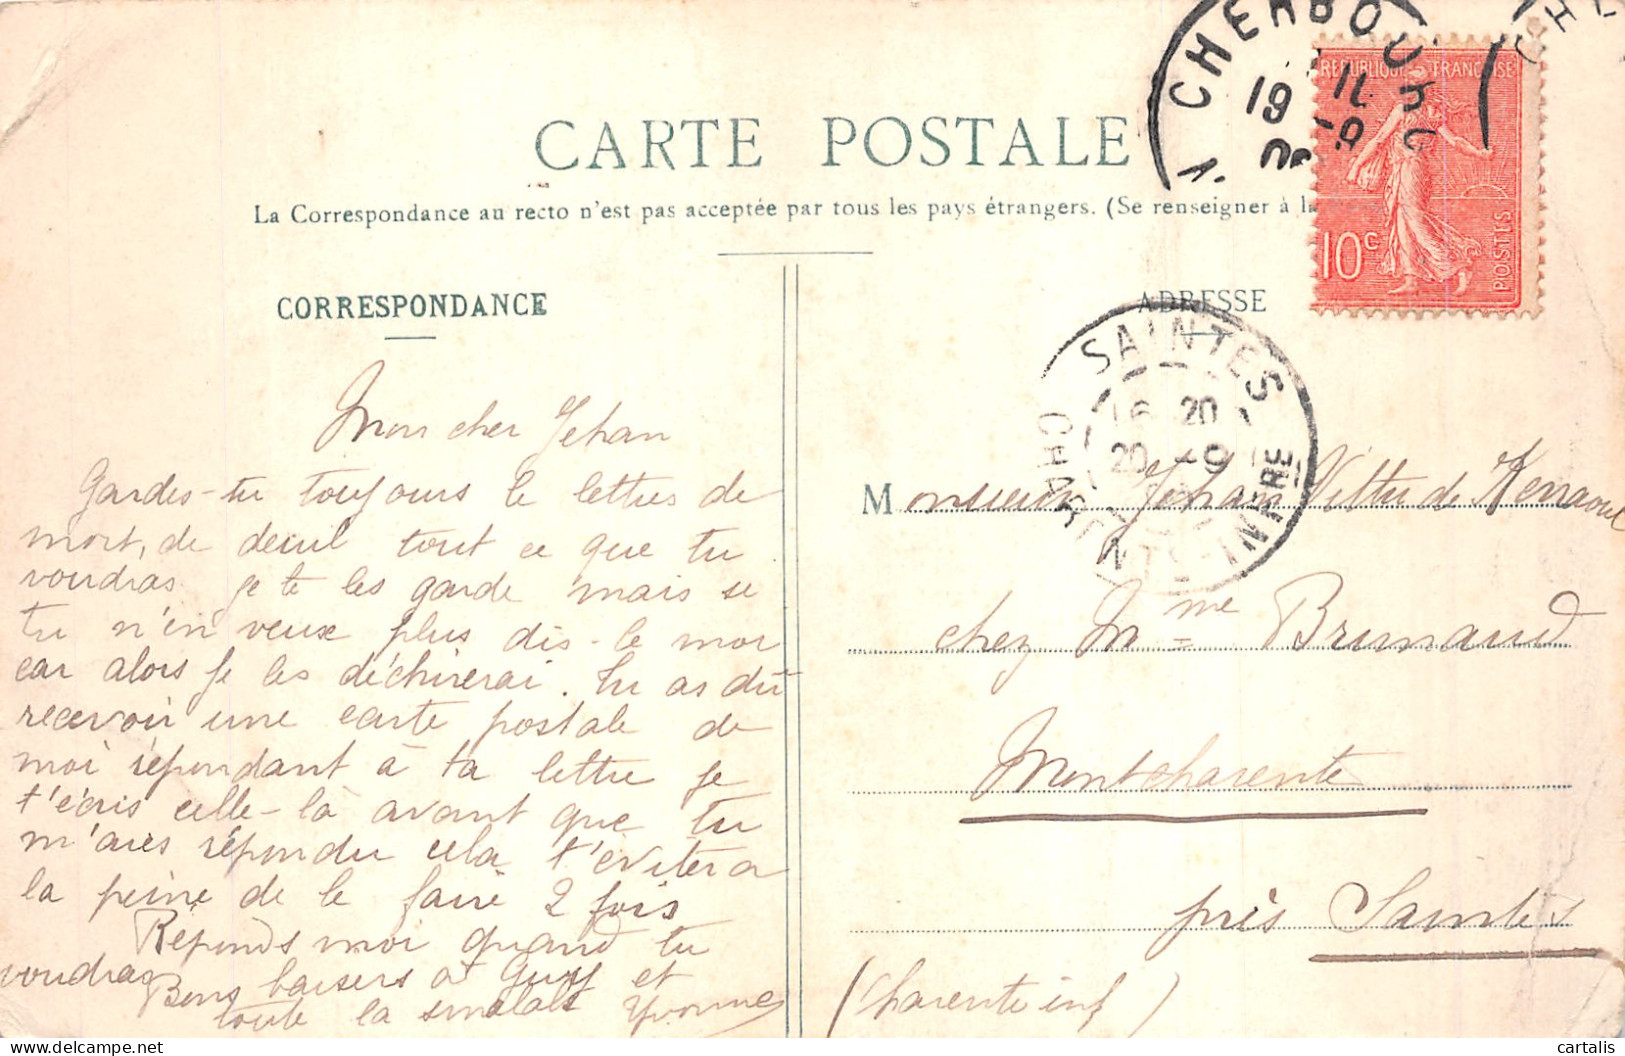 CARTE POSTALE
La Correspondance au recto n'est pas acceptée par tous les pays étrangers. (Se renseigner à la
CORRESPONDANCE
Mon cher Jehan
Gardes-tu toujours le lettres de
mort, de deuil tout ce que tu
voudras je te les garde mais si
tu n'en veux plus dis-le moi
car alors je les déchirerai. tu as dû
recevoir une carte postale de
moi répondant à ta lettre je
t'écris celle-là avant que tu
m'aies répondu cela t'évitera
la peine de le faire 2 fois
Réponds moi quand tu
voudras
Bons baisers à Guy et
toute la smalah Yvonne
CHERBOURG
19
REPUBLIQUE FRANÇAISE
10c
POSTES
ADRESSE
SAINTES
20
20 -9
CHARENTE-INFRE
Monsieur Jehan Vittu de Kerraoul
chez Mme Brunaud
Montcharente
près Saintes
(Charente inf)
cartalis